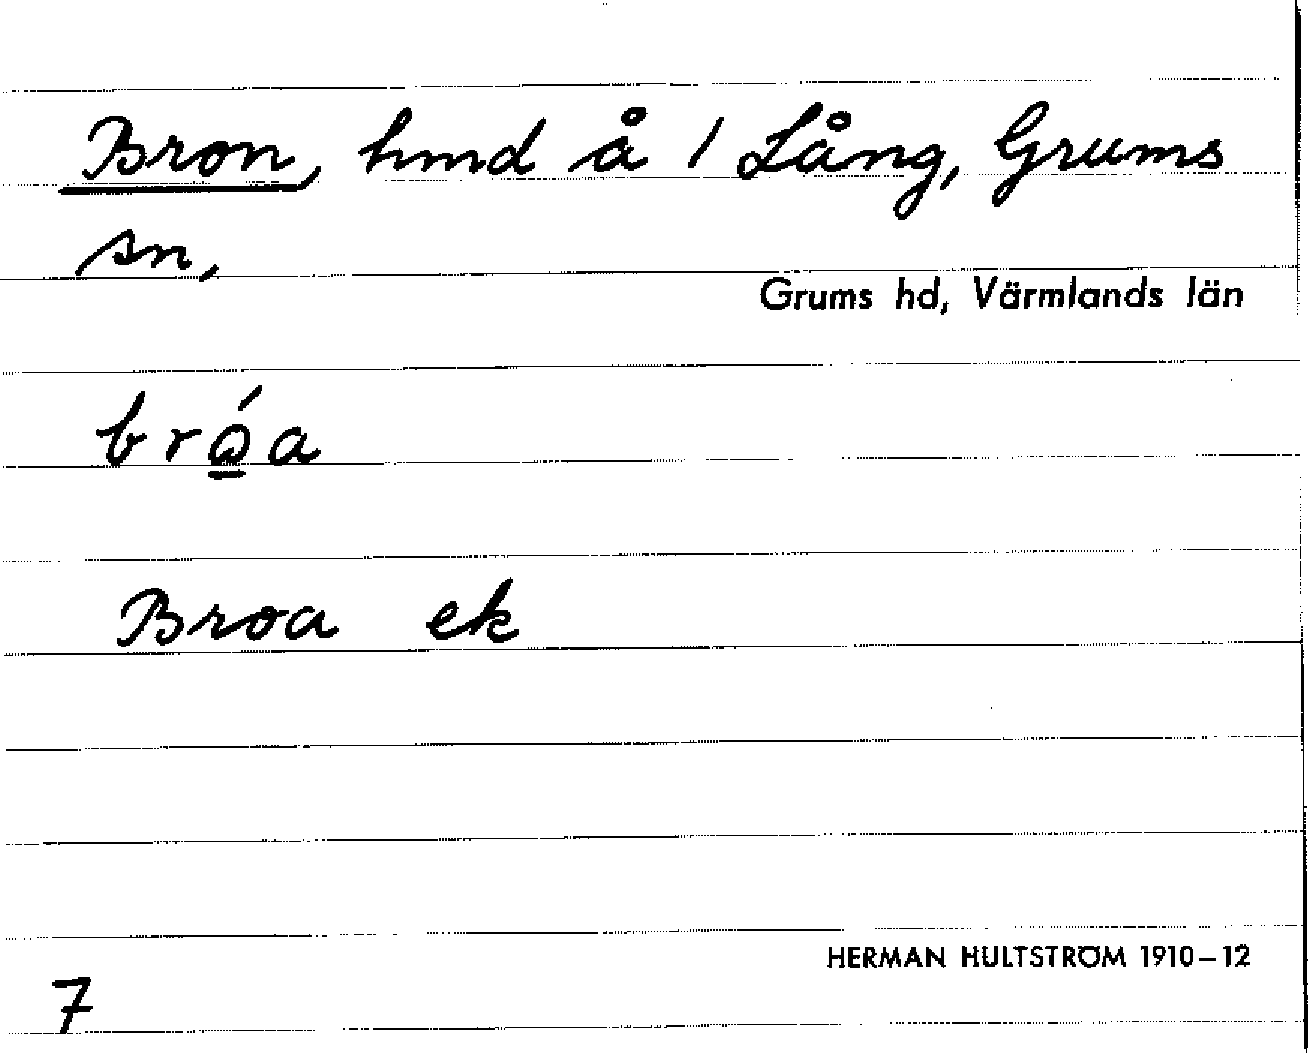 Bron, hmd å 1 Lång, Grums
sn,
Grums hd, Värmlands län
bró̲a
Broa ek
HERMAN HULTSTRÖM 1910–12
7